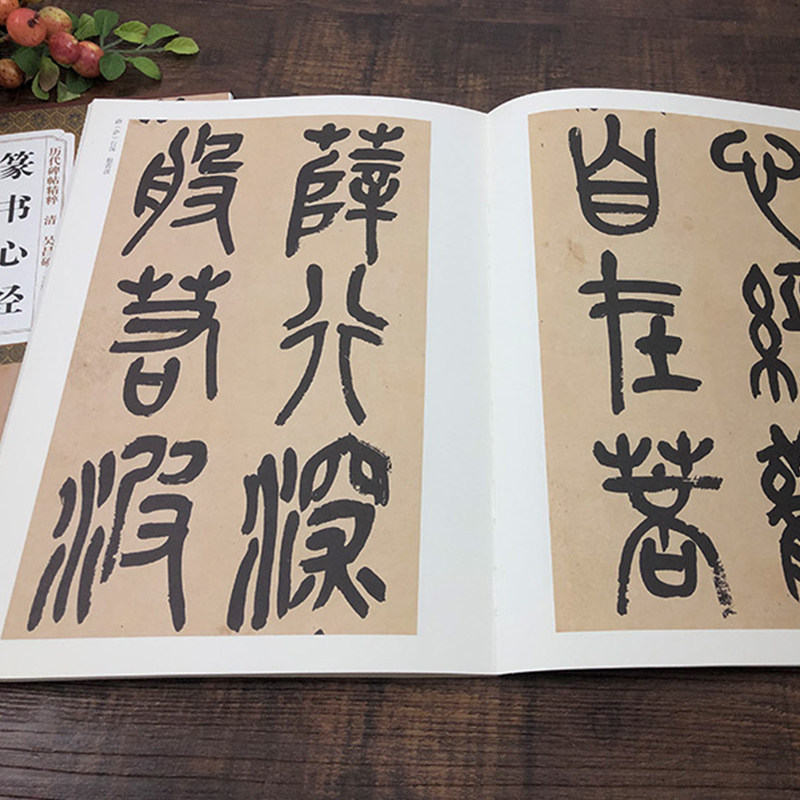 心經觀
自在菩
薛行深
般若波
历代碑帖精粹 清 吴昌硕
篆书心经